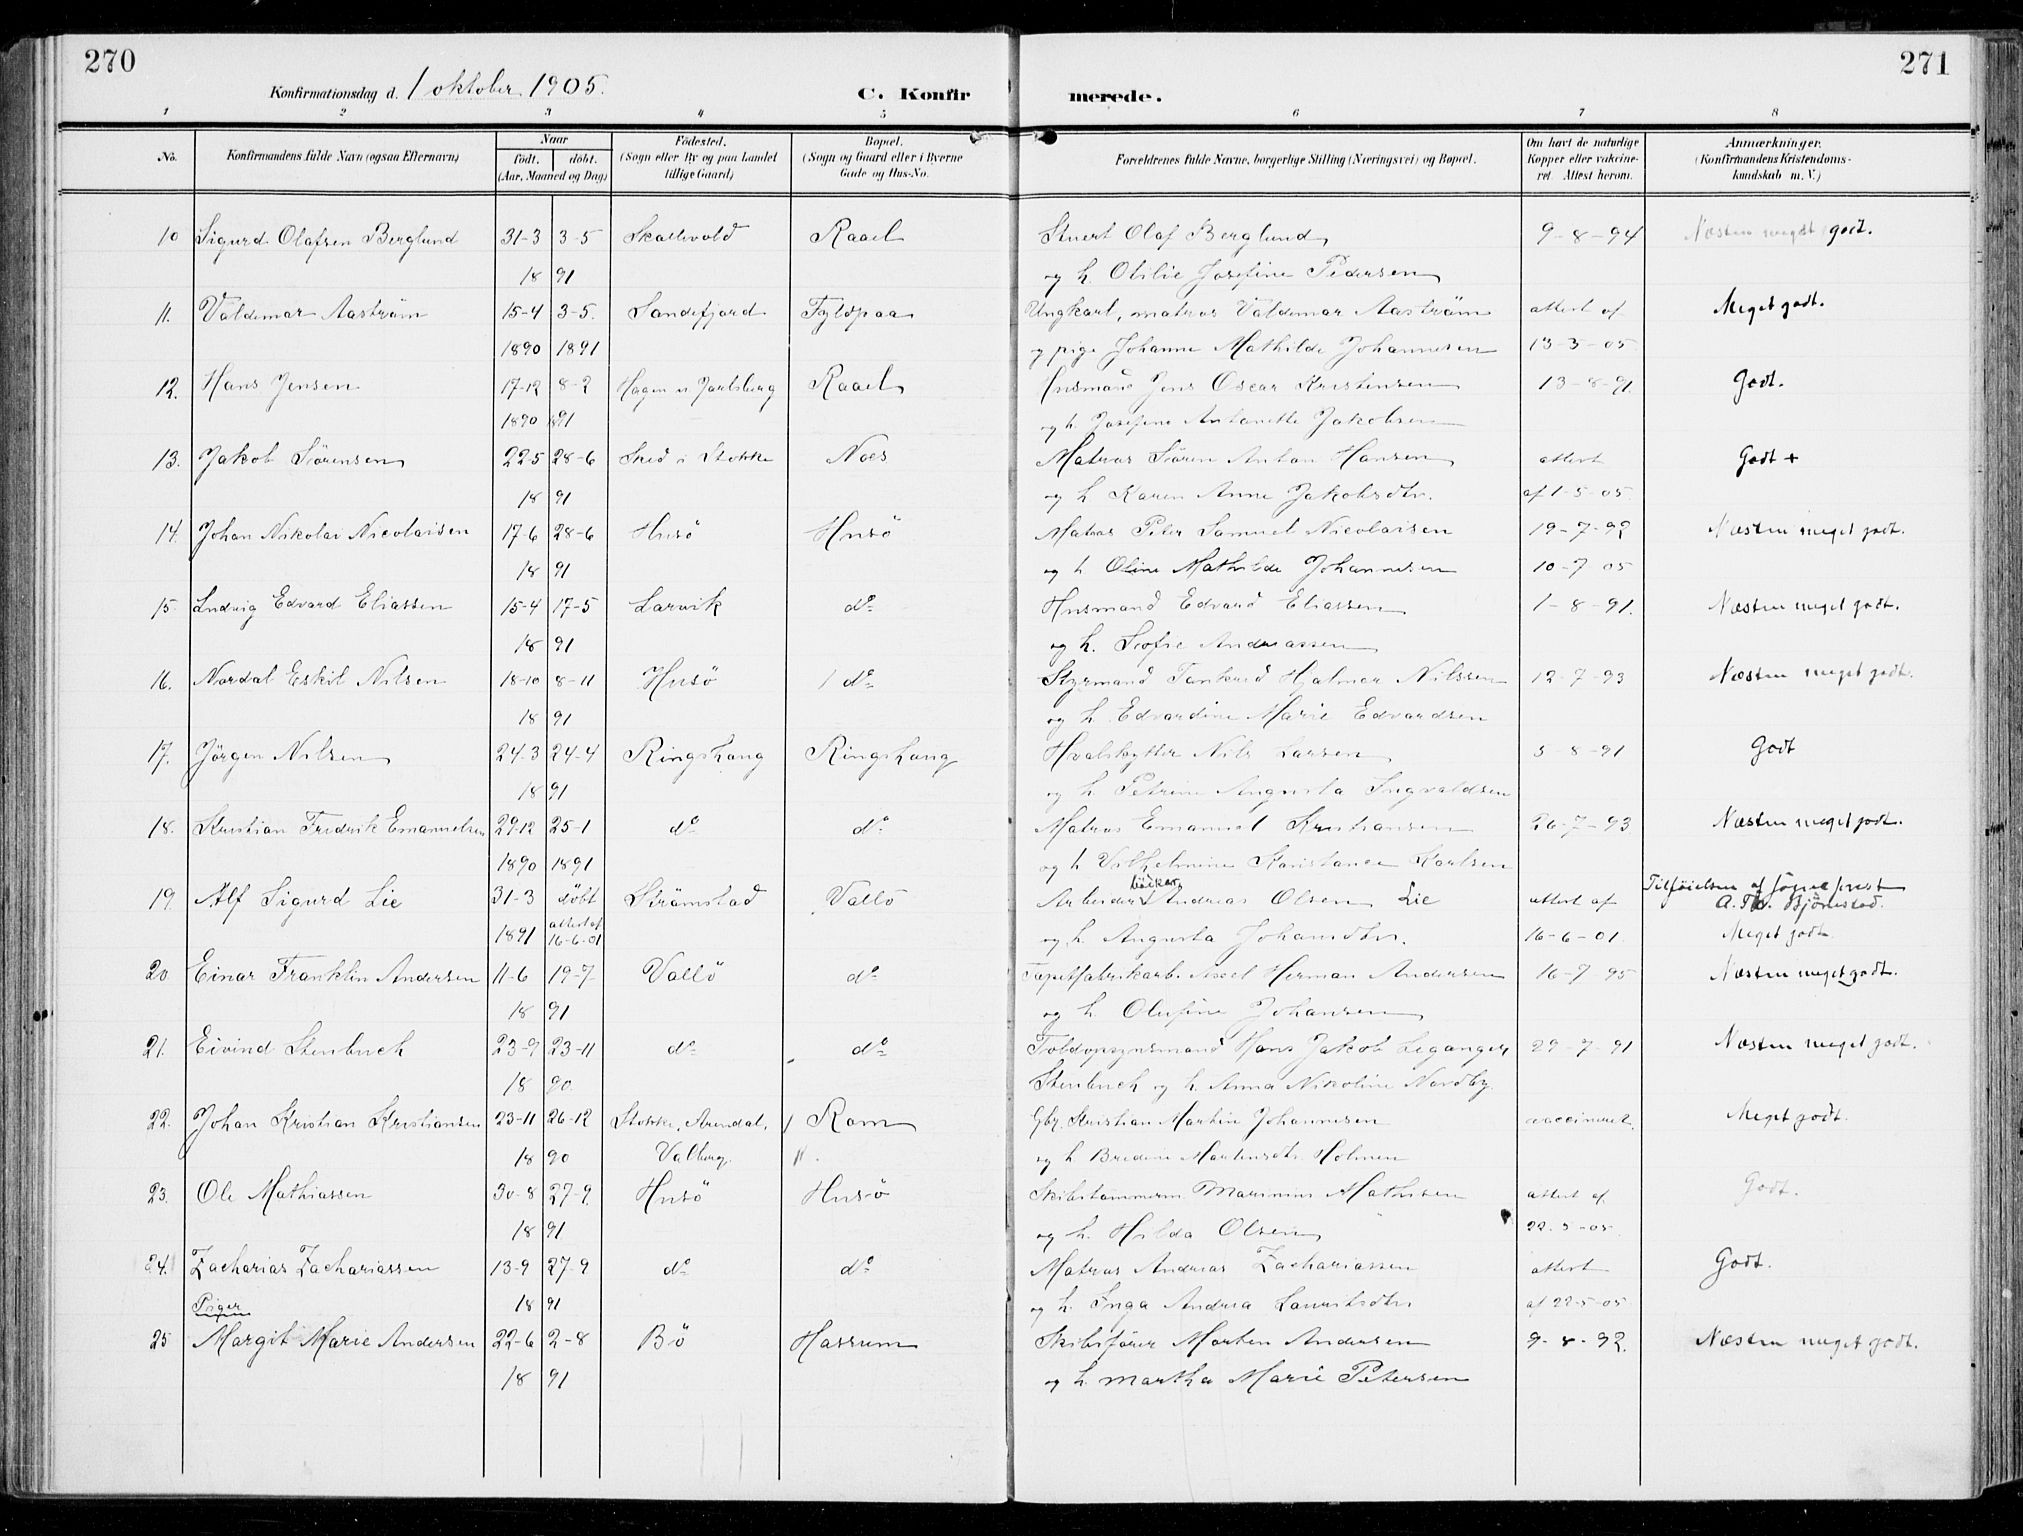 270
271
Konfirmationsdag d. 1 oktober 1905.
C. Konfirmerede.
1 2 3 4 5 6 7 8
No. Konfirmandens fulde Navn (ogsaa Efternavn) Naar født. døbt. (Aar, Maaned og Dag) Fødested. (Sogn eller By og paa Landet tillige Gaard) Bopæl. (Sogn og Gaard eller i Byerne Gade og Hus-No. Forældrenes fulde Navne, borgerlige Stilling (Næringsvei) og Bopæl. Om havt de naturlige Kopper eller vakcineret. Attest herom. Anmærkninger. (Konfirmandens Kristendomskundskab m. V.)
10 Sigurd Olafsen Berglund 31-3 3-5 Skallevold Raael Stuert Olaf Berglund 9-8-94 Næsten meget godt.
18 91 og h. Otilie Josefine Pedersen
11. Valdemar Aaström 15-4 3-5. Sandefjord Ungkarl, matros Valdemar Aaström attest af Meget godt.
1890 1891 og pige Johanne Mathilde Johannesen 13-3-05
12. Hans Jensen 17-12 8-2 Hagen u Jarlsberg Raael Husmand Jens Oscar Kristensen 13-8-91. Godt.
1890 1891 og h. Josefine Antonette Jakobsen
13. Jakob Sörensen 22-5 28-6 Sked i Stokke Noes Matros Sören Anton Hansen attest Godt +
18 91 og h Karen Anne Jakobsdtr. af 1-5-05.
14. Johan Nikolai Nicolaisen 17-6 28-6 Husö Husö Matros Peter Samuel Nicolaisen 19-7-92 Næsten meget godt.
18 91 og h Oline Mathilde Johannesen 10-7 05
15. Ludvig Edvard Eliassen 15-4 17-5 Larvik do Husmand Edvard Eliassen 1-8-91. Næsten meget godt.
18 91 og h. Sofie Andreassen
16. Nordal Eskil Nilsen 18-10 8-11 Husö do Styrmand Tankred Hjalmar Nilssen 12-7-93 Næsten meget godt.
18 91 og h. Edvardine Marie Edvardsen
17. Jörgen Nilsen 24-3 24-4 Ringshaug Ringshaug Hvalskytter Nils Larsen 3-8-91 Godt
18 91 og h Petrine Augusta Ingvaldsen
18. Kristian Fredrik Emanuelsen 29-12 25-1 do do Matros Emanuel Kristiansen 26-7-93 Næsten meget godt.
1890 1891 og h Vilhelmine Konstance Karlsen
19. Alf Sigurd Lie 31-3 döbt Strömstad Vallö Arbeider bödker Andreas Olsen Lie attest af Tilföielsen af sogneprest A. Th. Björnstad.
1891 attest af 16-6-01 og h. Augusta Johansdtr. 16-6-01. Meget godt
20 Einar Franklin Andersen 11-6 19-7 Vallö do Tapetfabrikarb. Axel Herman Andersen 16-7-95 Næsten meget godt.
18 91 og h. Olufine Johansen
21. Eivind Stenbuch 23-9 23-11 do do Toldopsynsmand Hans Jakob Leganger 29-7-91 Næsten meget godt.
18 90. Stenbuch og h. Anna Nikoline Nordby.
22. Johan Kristian Kristiansen 23-11 26-12 Stokke, Arendal, Rom Gbr. Kristian Martin Johannesen vaccineret. Meget godt.
18 90 Valberg. og h. Bredine Martinsdtr. Holmen
23. Ole Mathiassen 30-8 27-9. Husö Husö Skibstömmerm. Marinius Mathisen attest af Godt.
18 91 og h. Hilda Olsen 22-5-05
24. Zacharias Zachariassen 13-9 27-9 do do Matros Andreas Zachariassen attest Godt.
Piger 18 91 og h. Inga Andrea Lauritsdtr. af 22-5-05
25 Margit Marie Andersen 22-6 2-8 Bö Hassum Skibsförer Morten Andersen 9-8-92. Næsten meget godt.
18 91 og h. Martha Marie Petersen